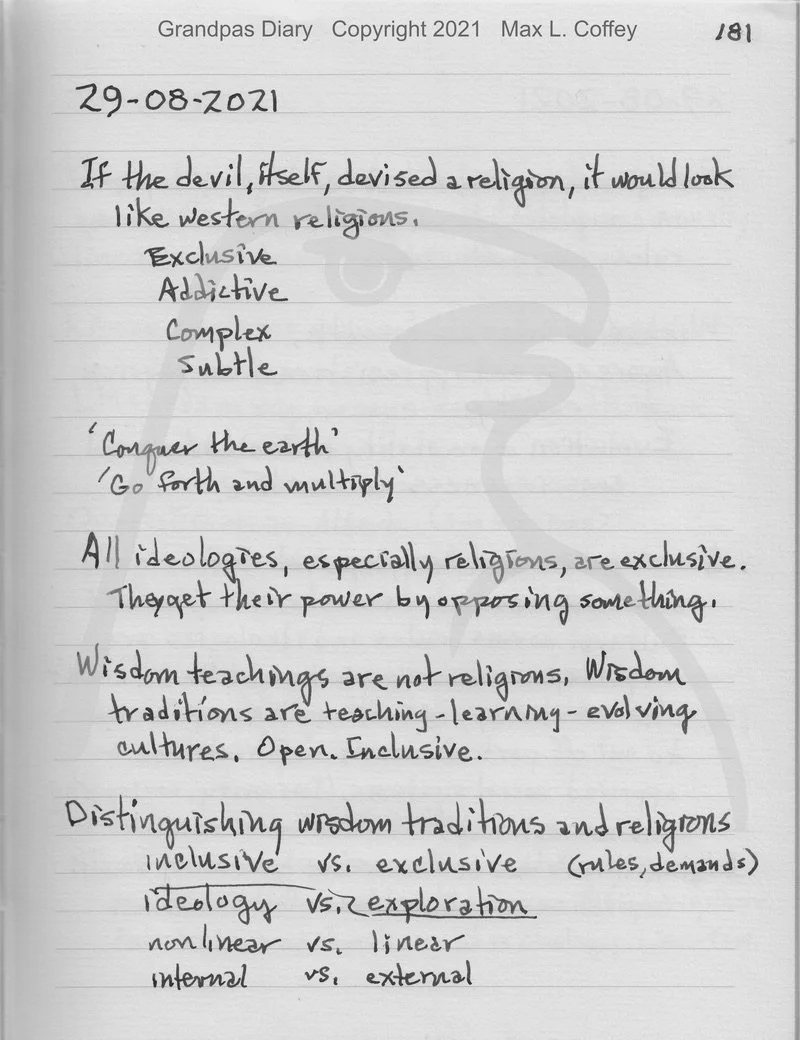 Grandpas Diary Copyright 2021 Max L. Coffey 181
29-08-2021
If the devil, itself, devised a religion, it would look
like western religions.
Exclusive
Addictive
Complex
Subtle
'Conquer the earth'
'Go forth and multiply'
All ideologies, especially religions, are exclusive.
They get their power by opposing something.
Wisdom teachings are not religions. Wisdom
traditions are teaching-learning-evolving
cultures. Open. Inclusive.
Distinguishing wisdom traditions and religions
inclusive vs. exclusive (rules, demands)
ideology vs. exploration
nonlinear vs. linear
internal vs. external